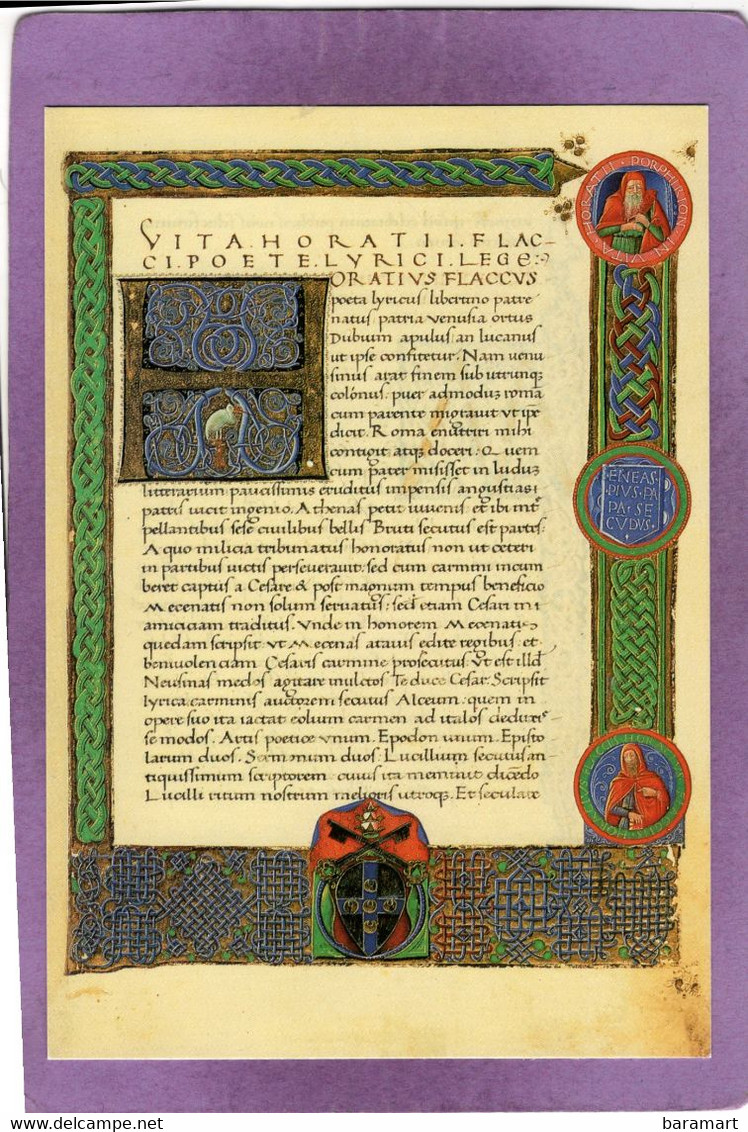 VITA·HORATII·FLAC-
CI·POETE·LYRICI·LEGE:
ORATIVS FLACCVS
poeta lyricus libertino patre
natus patria venusia ortus
Dubium apulus an lucanus
ut ipse confitetur. Nam venu
sinus arat finem sub utrunq;
colonus. puer admoduz roma
cum parente migravit vt ipe
dicit. Roma enutriri mihi
contigit atq; doceri: Quem
cum pater misisset in luduz
litterarium paucissimis eruditus impensis angustias
patris vicit ingenio. Athenas petit iuvenis et ibi
pellantibus sese civilibus bellis Bruti secutus est partis:
A quo milicia tribunatus honoratus non ut ceteri
in partibus victis perseveravit: sed cum carmini incum
beret captus a Cesare & post magnum tempus beneficio
Mecenatis non solum servatus: sed etiam Cesari in
amiciciam traditus. Vnde in honorem Mecenatis
quedam scripsit vt Mecenas atavis edite regibus: et
benivolenciam Cesaris carmine prosecutus. Vt est illd
Neu sinas medos agitare inultos Te duce Cesar. Scripsit
lyrica carminis auctorem secutus Alceum: quem in
opere suo ita iactat eolium carmen ad italos deduxis-
se modos. Artis poetice vnum. Epodon unum. Episto
larum duos. Sermonum duos: Lucillium secutus an-
tiquissimum scriptorem: cuius ita meminit ducedo
Lucilli ritum nostrum melioris utroq;. Et seculare
HORATII · PORPHIRION · IN VITA
ENEAS·
PIVS·PA
PA·SE
CVDVS·
Delcampe.net
baramart